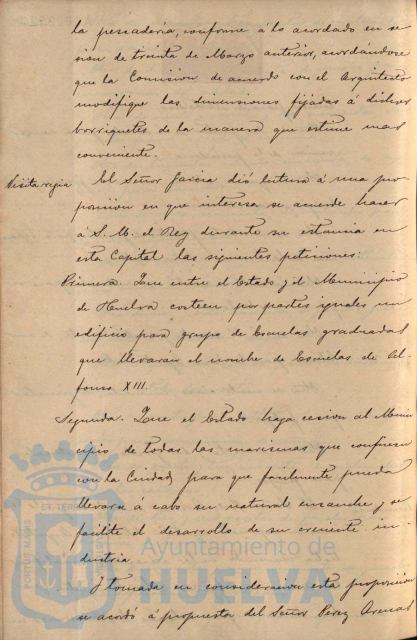 la pescadería, conforme á lo acordado en se
sion de treinta de Marzo anterior, acordándose
que la Comision de acuerdo con el Arquitecto
modifique las dimensiones fijadas á dichos
borriquetes de la manera que estime mas
conveniente.
Visita regia
El Señor Garcia dió lectura á una pro
posicion en que interesa se acuerde hacer
á S. M. el Rey durante su estancia en
esta Capital las siguientes peticiones:
Primera. Que entre el Estado y el Municipio
de Huelva costeen por partes iguales un
edificio para grupo de Escuelas graduadas
que llevarán el nombre de Escuelas de Al-
fonso XIII.
Segunda. Que el Estado haga cesion al Muni
cipio de todas las marismas que confinan
con la Ciudad, para que facilmente pueda
llevarse á cabo su natural ensanche y se
facilite el desarrollo de su creciente in-
dustria.
Y tomada en consideracion esta proposicion
se acordó á propuesta del Señor Perez Arenas
PORTUS MARIS
ET TERRÆ
Ayuntamiento de
HUELVA